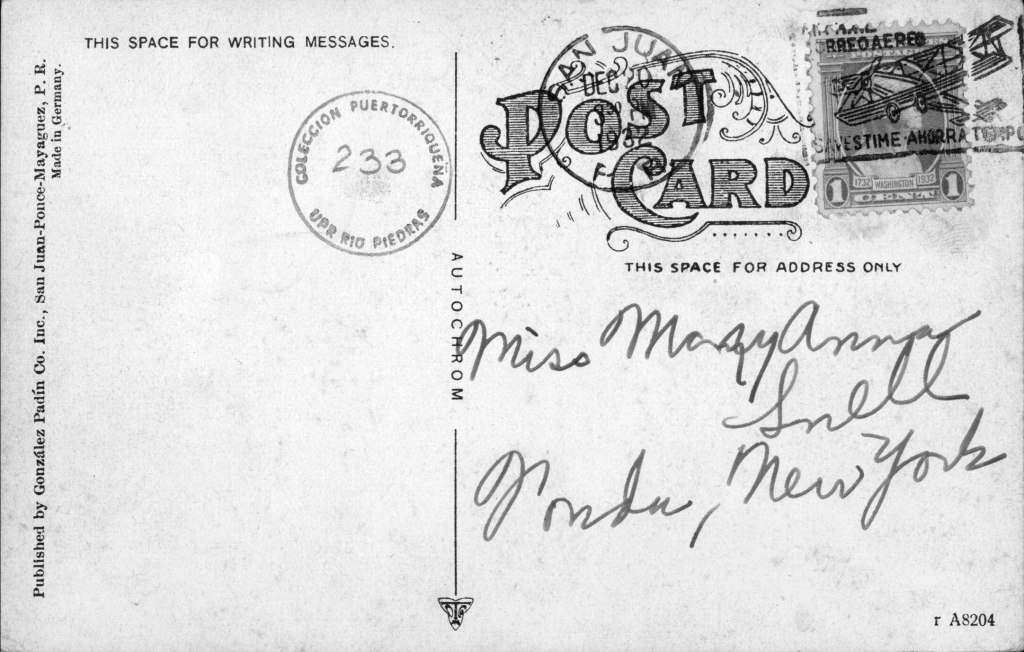 THIS SPACE FOR WRITING MESSAGES.
Published by González Padín Co. Inc., San Juan-Ponce-Mayaguez, P. R.
Made in Germany.
COLECCION PUERTORRIQUEÑA
233
UPR RIO PIEDRAS
AUTOCHROM
POST
CARD
SAN JUAN
DEC
1932
P R
CORREO AEREO
SAVES TIME-AHORRA TIEMPO
1732 WASHINGTON 1932
1 CENT 1
THIS SPACE FOR ADDRESS ONLY
Miss Mary Anna
Snell
Fonda, New York
r A8204